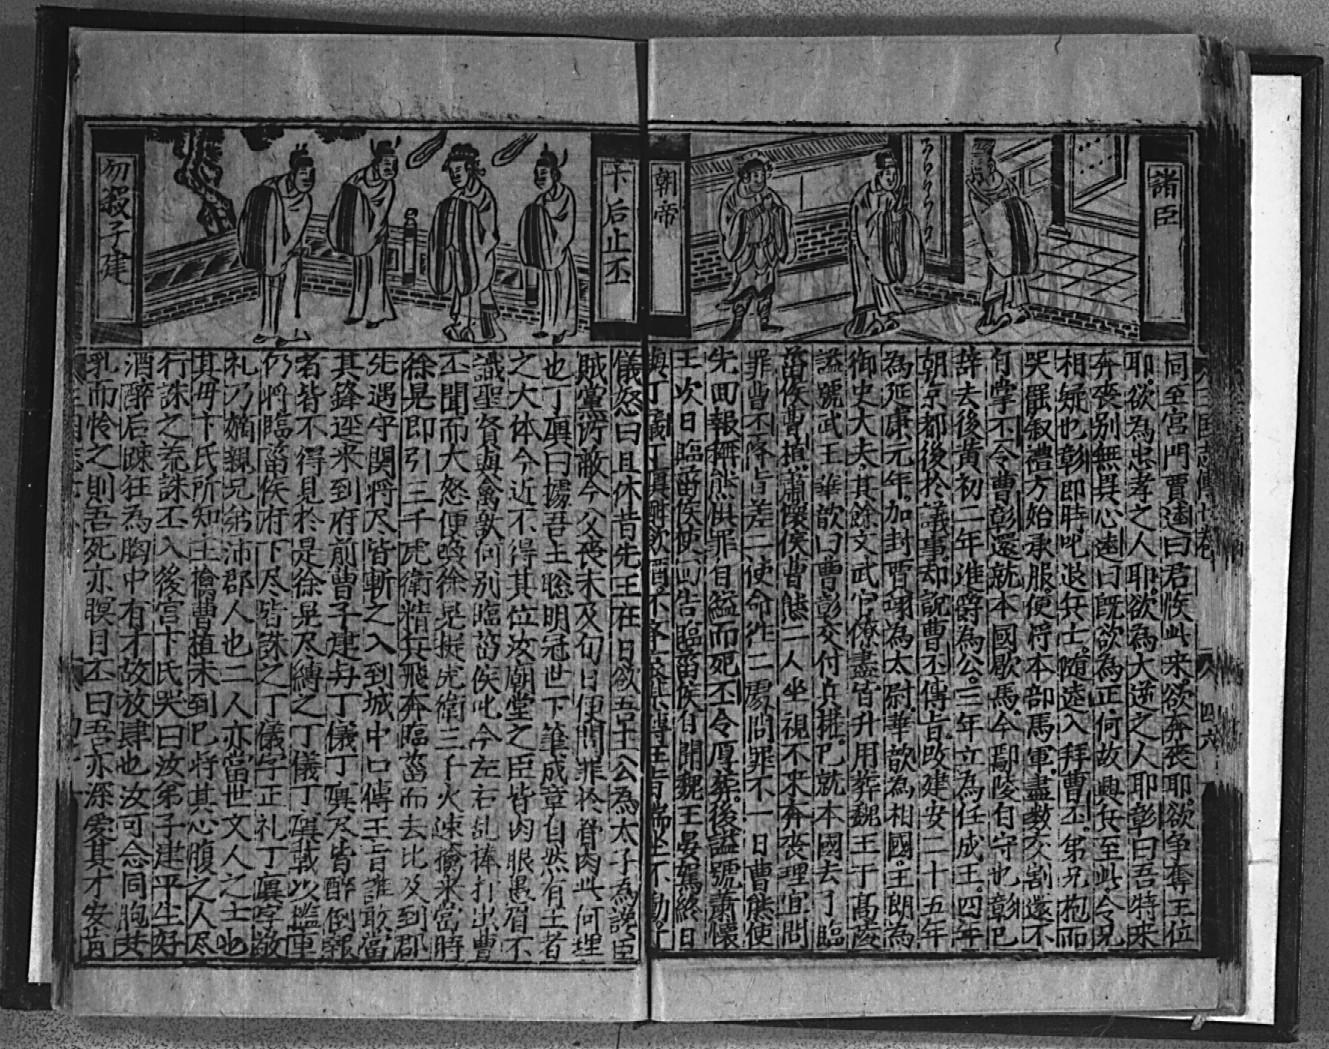 諸臣
朝帝
同至宮門賈逵曰君侯此來欲奔喪耶欲爭奪王位
耶欲為忠孝之人耶欲為大逆之人耶彰曰吾特來
奔喪別無異心逵曰既欲為正何故興兵至此今兄
相疑也彰即時叱退兵士隨逵入拜曹丕弟兄抱而
哭罷叙禮方始承服便將本部馬軍盡數交割還不
自掌丕令曹彰還就本國歇馬今鄢陵自守也彰巴
辞去後黃初二年進爵為公三年立為任成王四年
朝京都後於議事却說曹丕傳旨改建安二十五年
為延康元年加封賈詡為太尉華歆為相國王朗為
御史大夫其餘文武官僚盡皆升用葬魏王于高陵
謚號武王華歆曰曹彰交付兵權巴就本國去了臨
菑侯曹植蕭懷侯曹熊二人坐視不來奔喪理宜問
罪曹丕降旨差二使命往二處問罪不一日曹熊使
先回報稱熊惧罪自縊而死丕令厚葬後謚號肅懷
王次日臨菑侯使回告臨菑侯自聞魏王晏駕終日
與丁儀丁廙酣飲酒
卞后止丕
勿殺子建
儀怒曰且休昔先王在日欲吾主公為太子為讒臣
賊黨所蔽今父喪未及旬日便問罪於骨肉此何理
也丁廙曰據吾主聰明冠世下筆成章自然有王者
之大体今近不得其位汝廟堂之臣皆肉眼愚眉不
識聖賢與禽獸何別臨菑侯叱令左右乱棒打出曹
丕聞而大怒便喚徐晃提虎衛三千火速擒來當時
徐晃即引三千虎衛精兵飛奔臨菑而去比及到郡
先遇守関將尽皆斬之入到城中口傳王旨誰敢當
其鋒逕來到府前曹子建与丁儀丁廙尽皆醉倒報
者皆不得見於是徐晃尽縛之丁儀丁廙載以檻車
仍將臨菑侯府下尽皆誅之丁儀字正礼丁廙字敬
礼乃嫡親兄弟沛郡人也二人亦當世文人之士也
其毋卞氏所知主擒曹植未到巴將其心腹之人尽
行誅之荒誅丕入後宮卞氏哭曰汝弟子建平生好
酒醉后踈狂為胸中有才故放肆也汝可念同胞共
乳而怜之則吾死亦瞑目丕曰吾亦深爱其才安肯